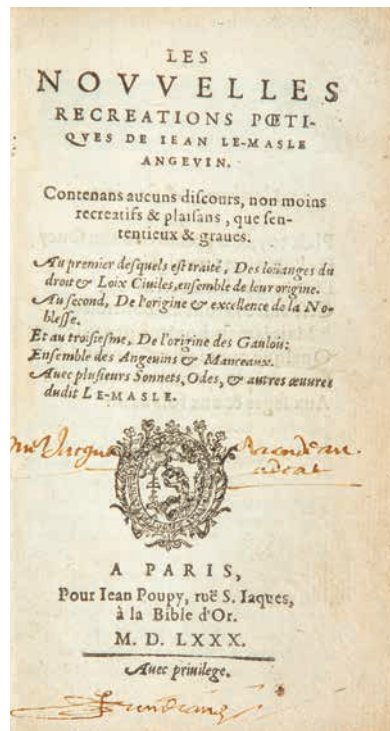 LES
NOVVELLES
RECREATIONS PŒTI-
QVES DE IEAN LE-MASLE
ANGEVIN.
Contenans aucuns discours, non moins
recreatifs & plaisans, que sen-
tentieux & graues.
Au premier desquels est traité, Des loüanges du
droit & Loix Ciuiles, ensemble de leur origine.
Au second, De l'origine & excellence de la No-
blesse.
Et au troisiesme, De l'origine des Gaulois:
Ensemble des Angeuins & Manceaux.
Auec plusieurs Sonnets, Odes, & autres œuures
dudit LE-MASLE.
A PARIS,
Pour Iean Poupy, ruë S. Iaques,
à la Bible d'Or.
M. D. LXXX.
Auec priuilege.